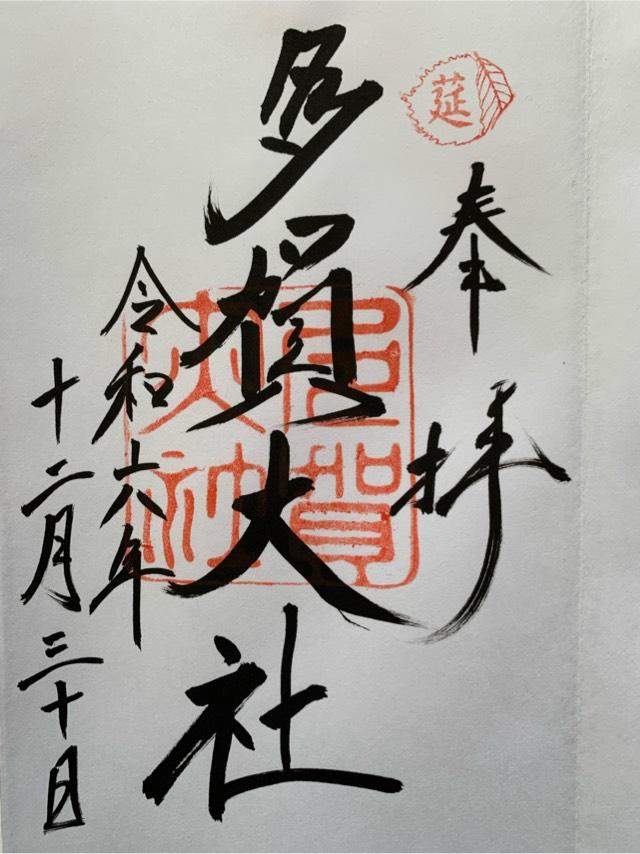 莚
奉拝
多賀大社
多賀大社
令和六年
十二月三十日